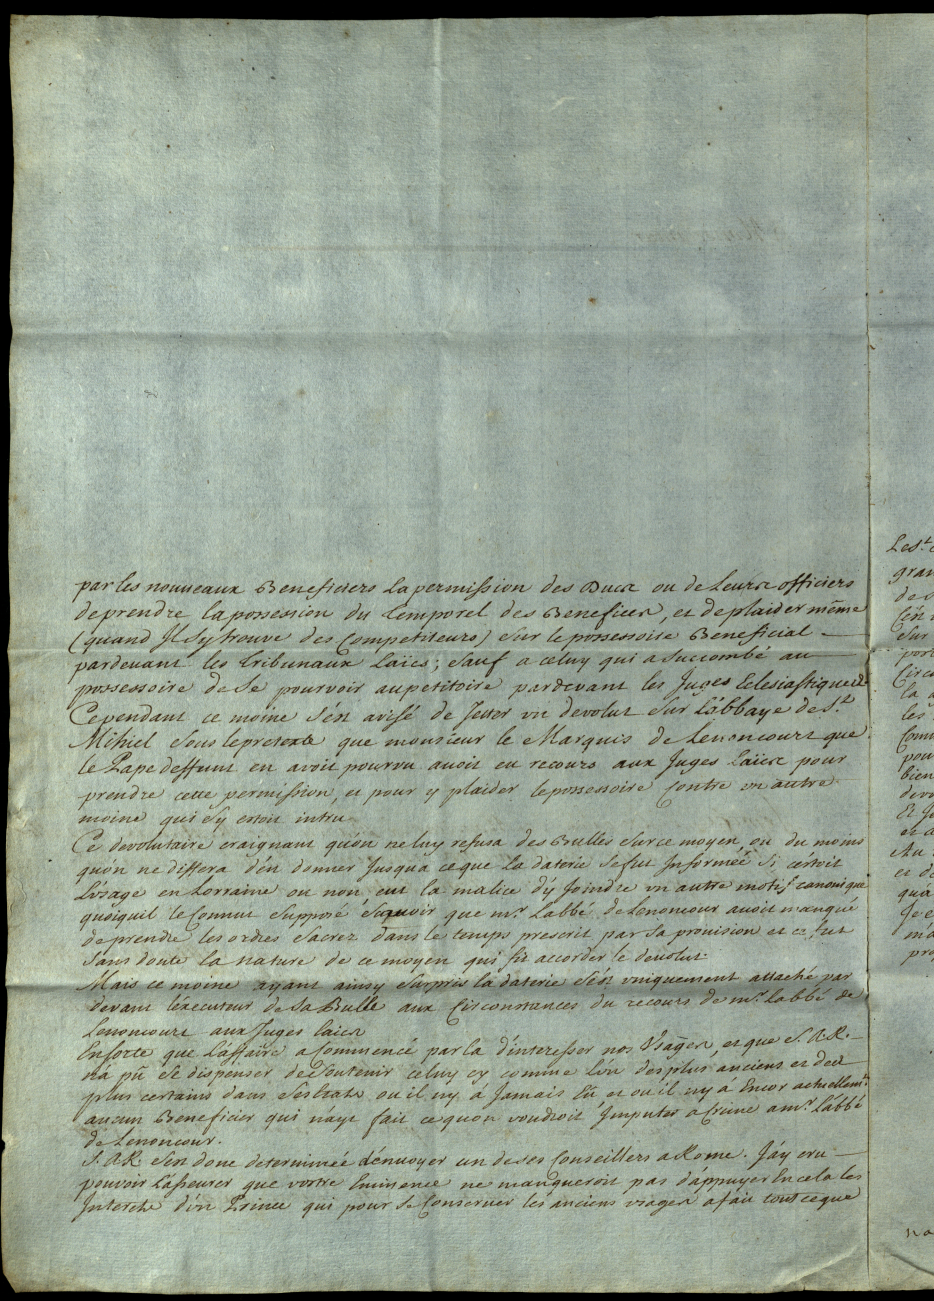 par les nouveaux Beneficiers la permission des Ducs ou de Leurs officiers
de prendre la possession du temporel des Benefices, et de plaider même
(quand Il s'y trouve des Competiteurs) sur le possessoire Beneficial
pardevant les tribunaux Laïcs; sauf a celuy qui a succombé au
possessoire de se pourvoir au petitoire pardevant les Juges Eclesiastiques
Cependant ce moine s'est avisé de Jetter un devolut sur L'abbaye de St
Mihiel sous le pretexte que monsieur le Marquis de Lenoncourt que
le Pape deffunt en avoit pourvu avoit eu recours aux Juges Laïcs pour
prendre cette permission, et pour y plaider le possessoire Contre un autre
moine qui s'y estoit intru
Ce devolutaire craignant qu'on ne luy refusa des Bulles sur ce moyen, ou du moins
qu'on ne differa d'en donner Jusqu'a ce que la daterie se fut Informée si c'estoit
L'usage en Lorraine ou non, eut la malice d'y Joindre un autre motif canonique
quoiquil le Connut Supposé scavoir que mr Labbé de Lenoncour avoit manqué
de prendre les ordres Sacrez dans le temps prescrit par sa provision et ce fut
sans doute la nature de ce moyen qui fit accorder le devolut
Mais ce moine ayant ainsy surpris la daterie s'est uniquement attaché par
devant l'executeur de sa Bulle aux Circonstances du recours de mr Labbé de
Lenoncourt aux Juges Laics
Ensorte que L'affaire a Commencé par la d'interesser nos Usages, et que S.A.R.
n'a pû se dispenser de soutenir celuy cy comme L'un des plus anciens et des
plus certains dans ses Estats ou il ny à Jamais Eü et ou il ny à Encor actuellemt
aucun Beneficier qui n'ayt fait ce quon voudroit Imputer a Crime a mr L'abbé
de Lenoncour.
S.A.R. s'est donc determinée d'envoyer un de ses Conseillers a Rome. J'ay cru
pouvoir L'asseurer que vostre Eminence ne manqueroit pas d'appuyer En cela les
Interests d'un Prince qui pour se Conserver les anciens usages a fait tout ce que